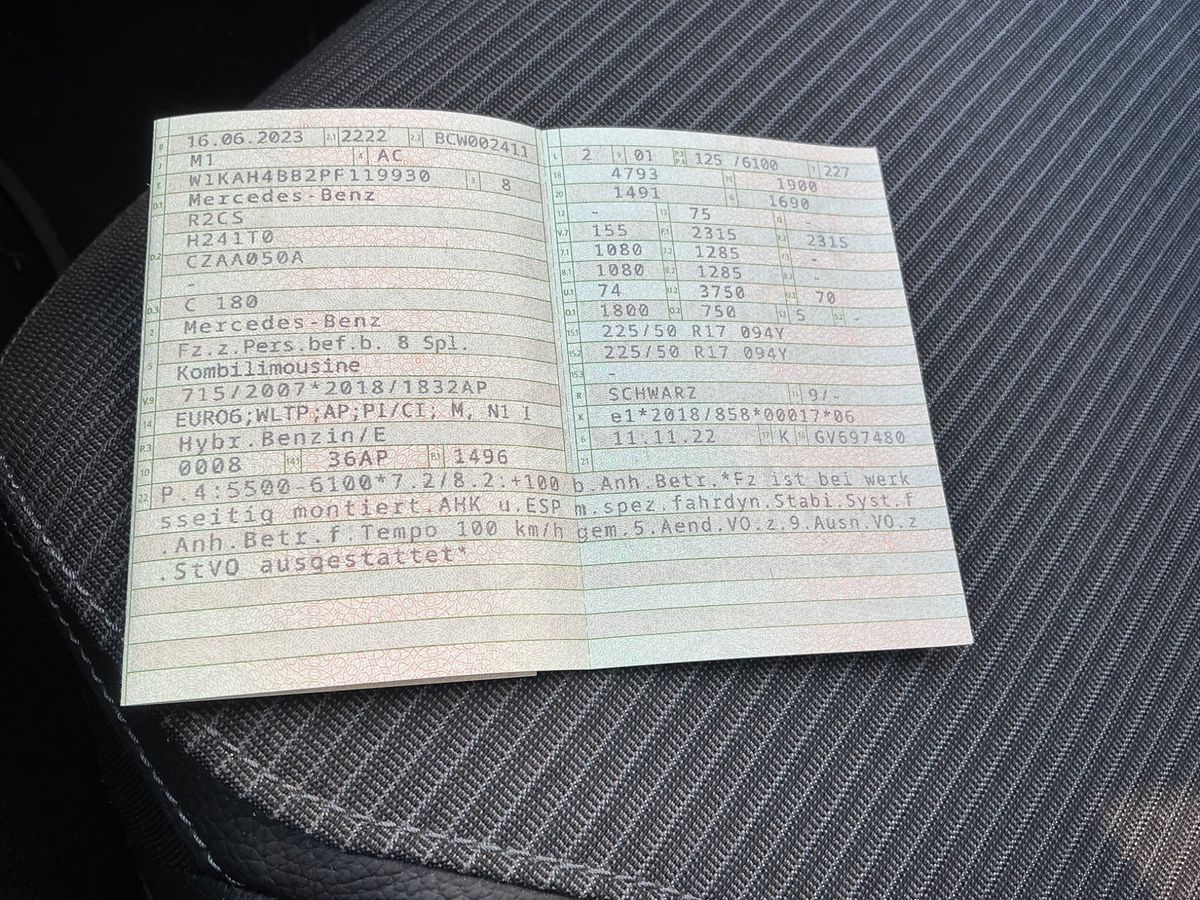 B 16.06.2023 2.1 2222 2.2 BCW002411
J M1 4 AC
E W1KAH4BB2PF119930 3 8
D.1 Mercedes-Benz
R2CS
H241T0
D.2 CZAA050A
-
D.3 C 180
2 Mercedes-Benz
Fz.z.Pers.bef.b. 8 Spl.
5 Kombilimousine
V.9 715/2007*2018/1832AP
14 EURO6;WLTP;AP;PI/CI; M, N1 I
P.3 Hybr.Benzin/E
10 0008 14.1 36AP P.1 1496
L 2 9 01 P.2 P.4 125 /6100 T 227
18 4793 19 1900
20 1491 G 1690
12 - 13 75 Q -
V.7 155 F.1 2315 F.2 2315
7.1 1080 7.2 1285 7.3 -
8.1 1080 8.2 1285 8.3 -
U.1 74 U.2 3750 U.3 70
O.1 1800 O.2 750 S.1 5 S.2 -
15.1 225/50 R17 094Y
15.2 225/50 R17 094Y
15.3 -
R SCHWARZ 11 9/-
K e1*2018/858*00017*06
6 11.11.22 17 K 16 GV697480
21
22 P.4:5500-6100*7.2/8.2:+100 b.Anh.Betr.*Fz ist bei werk
sseitig montiert.AHK u.ESP m.spez.fahrdyn.Stabi.Syst.f
.Anh.Betr.f.Tempo 100 km/h gem.5.Aend.VO.z.9.Ausn.VO.z
.StVO ausgestattet*